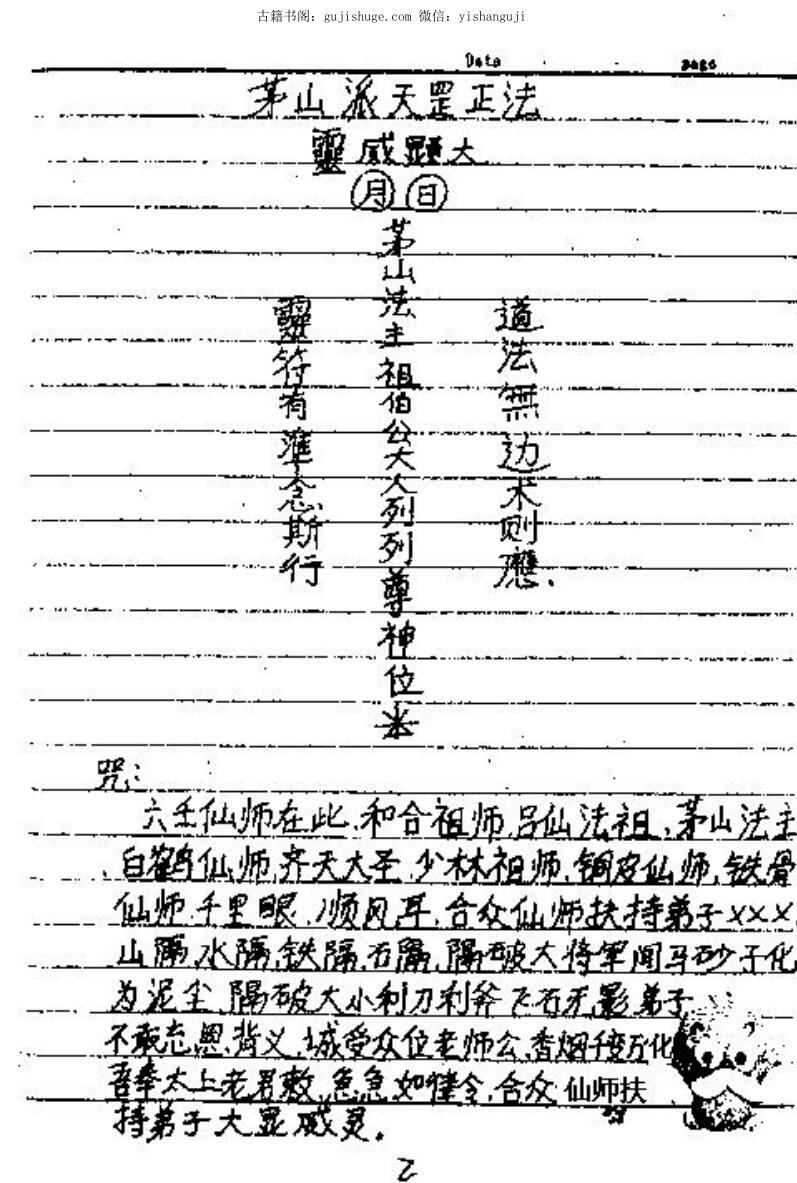 古籍书阁：gujishuge.com 微信：yishanguji
Date page
茅山派天罡正法
靈威顯大
月 日
道法無边术则應.
茅山法主祖伯公大人列列尊神位
靈符有準念斯行
咒:
六壬仙师在此,和合祖师,吕仙法祖,茅山法主
白鹤仙师,齐天大圣,少林祖师,铜皮仙师,铁骨
仙师,千里眼,顺风耳,合众仙师扶持弟子×××
山隔,水隔,铁隔,石隔,隔破大将军间马砂子化
为泥尘,隔破大小利刀利斧飞石无影,弟子
不敢忘恩背义,城受众位老师公,香烟千变万化
吾奉太上老君敕,急急如律令,合众仙师扶
持弟子大显威灵.
2